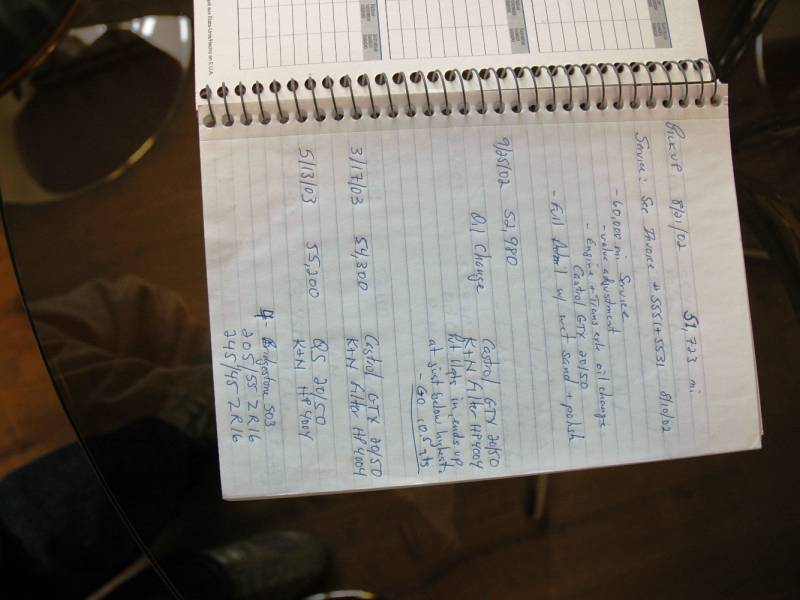 Pickup 8/21/02 51,723 mi.
Service: See Invoice # 5551+5531 8/10/02
- 60,000 mi. Service
- valve adjustment
- Engine + Transaxle oil change
Castrol GTX 20/50
- Full Detail w/ wet sand + polish
9/25/02 52,980
Oil Change Castrol GTX 20/50
K+N Filter HP4004
Put 11qts in, ends up
at just below highest.
- Go 10.5 qts
3/17/03 54,300 Castrol GTX 20/50
K+N Filter HP4004
5/3/03 55,200 QS 20/50
K+N HP4004
4- Bridgestone S03
205/55 ZR16
245/45 ZR16